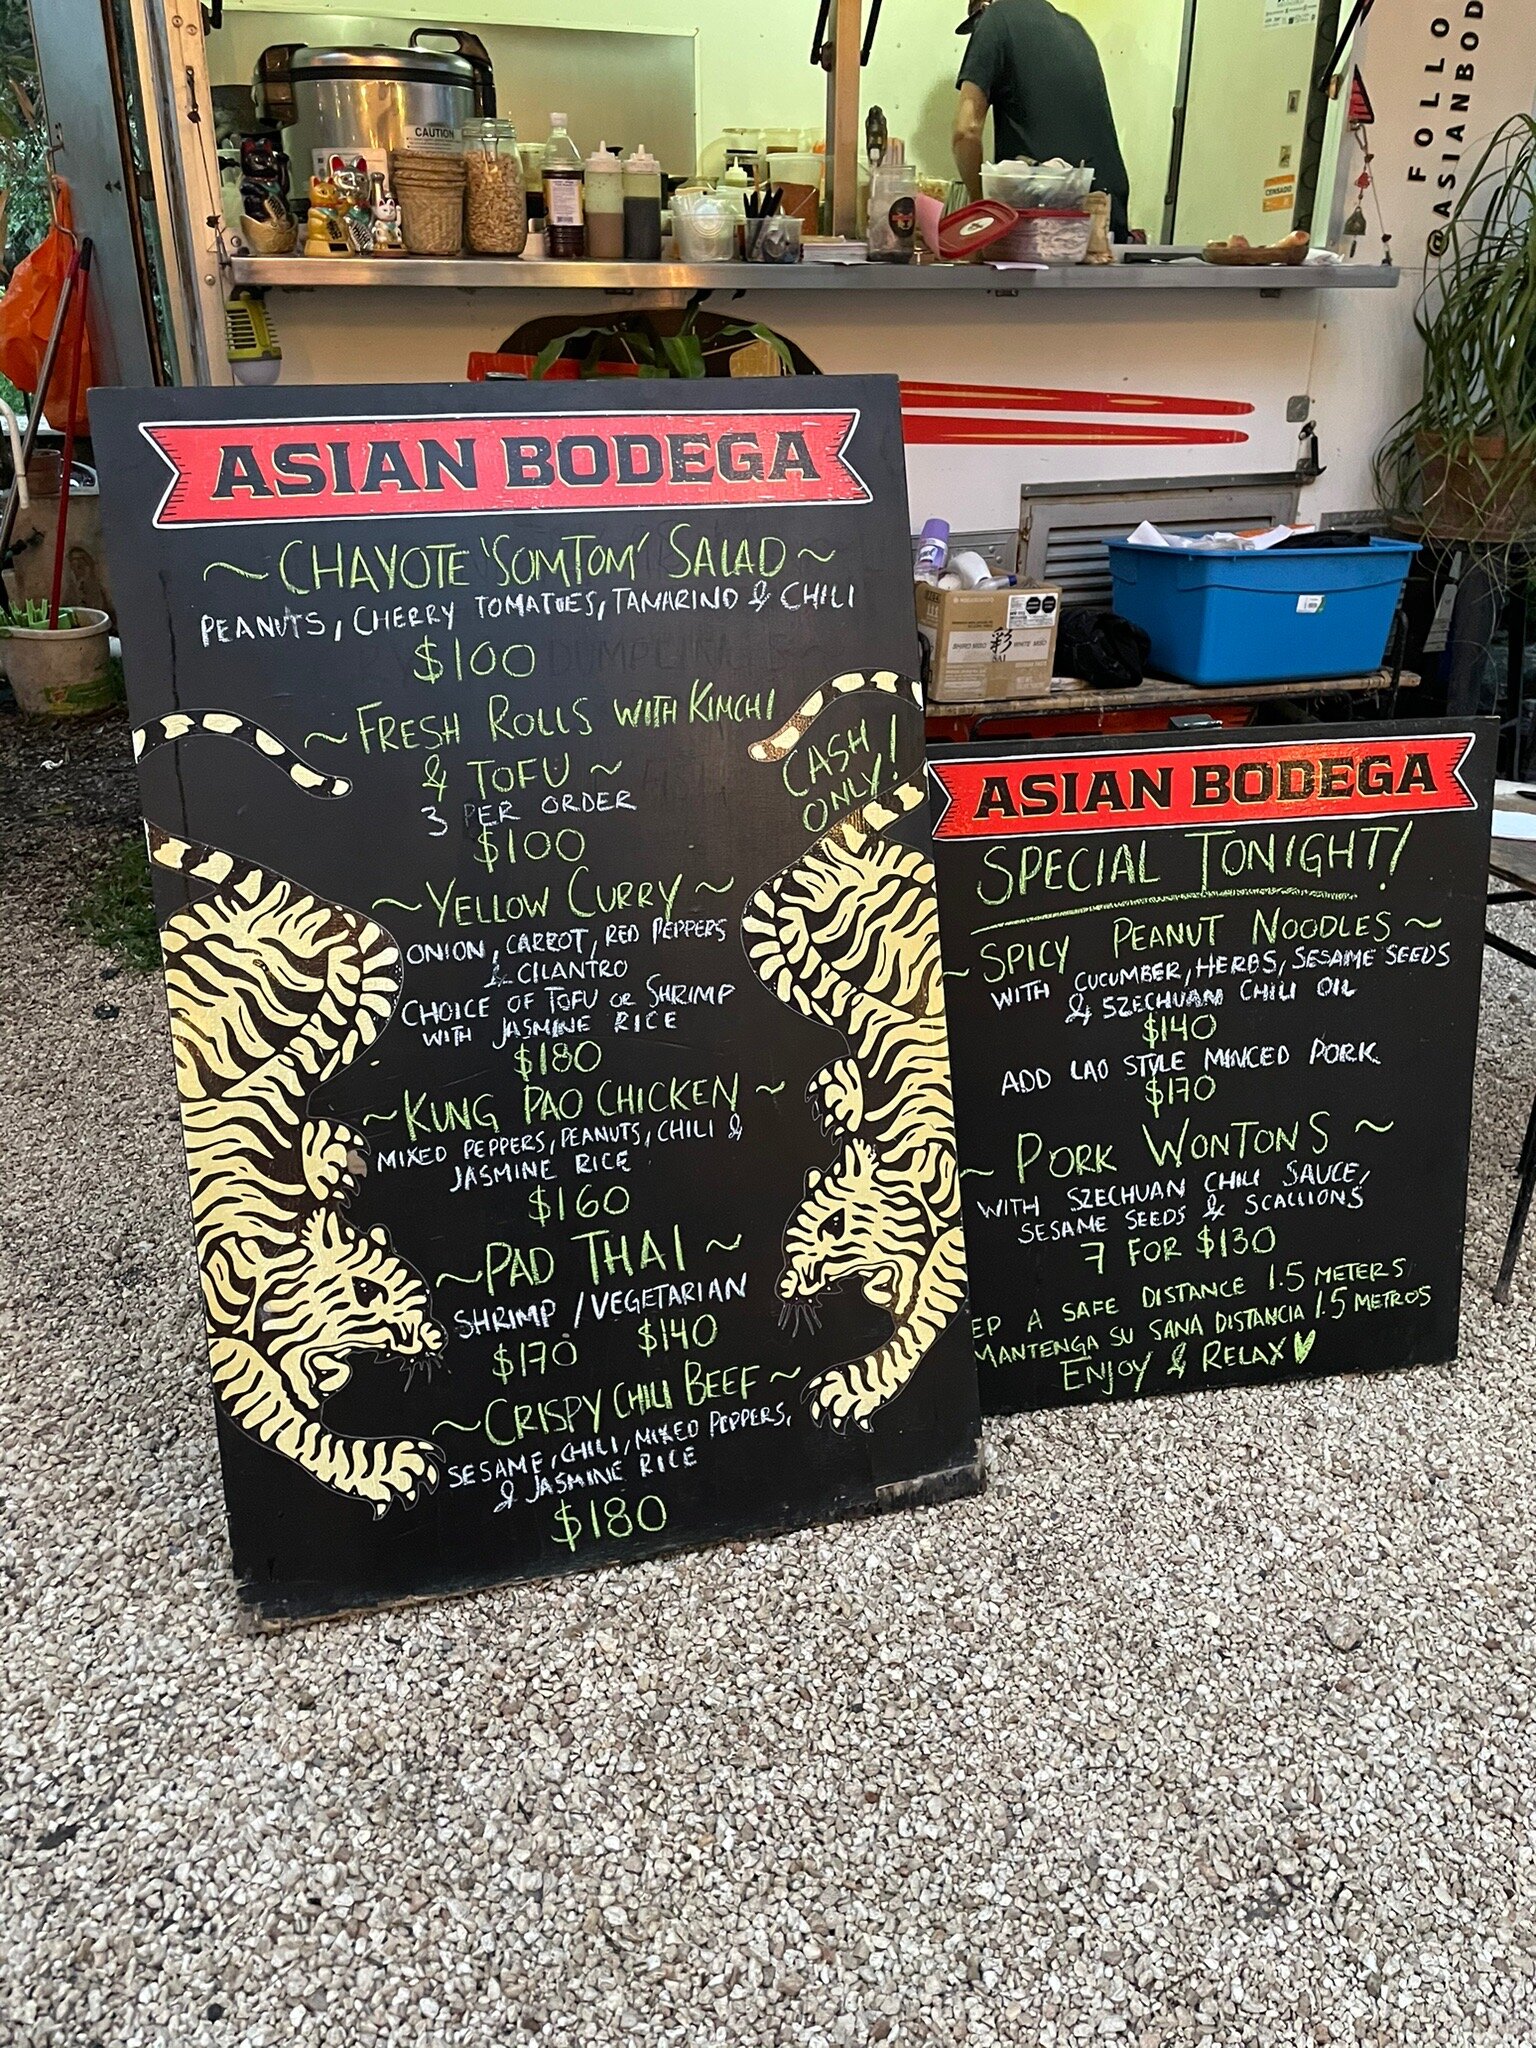 CAUTION
FOLLO
@ASIANBOD
CENSADO
ASIAN BODEGA
~CHAYOTE 'SOMTOM' SALAD~
PEANUTS, CHERRY TOMATOES, TAMARIND & CHILI
$100
~FRESH ROLLS WITH KIMCHI
& TOFU~
3 PER ORDER
$100
CASH
ONLY!
~YELLOW CURRY~
ONION, CARROT, RED PEPPERS
& CILANTRO
CHOICE OF TOFU OR SHRIMP
WITH JASMINE RICE
$180
~KUNG PAO CHICKEN~
MIXED PEPPERS, PEANUTS, CHILI &
JASMINE RICE
$160
~PAD THAI~
SHRIMP / VEGETARIAN
$170 $140
~CRISPY CHILI BEEF~
SESAME, CHILI, MIXED PEPPERS,
& JASMINE RICE
$180
彩
SHIRO MISO WHITE MISO
SAI
ASIAN BODEGA
SPECIAL TONIGHT!
~SPICY PEANUT NOODLES~
WITH CUCUMBER, HERBS, SESAME SEEDS
& SZECHUAN CHILI OIL
$140
ADD LAO STYLE MINCED PORK
$170
~PORK WONTONS~
WITH SZECHUAN CHILI SAUCE,
SESAME SEEDS & SCALLIONS
7 FOR $130
EP A SAFE DISTANCE 1.5 METERS
MANTENGA SU SANA DISTANCIA 1.5 METROS
ENJOY & RELAX